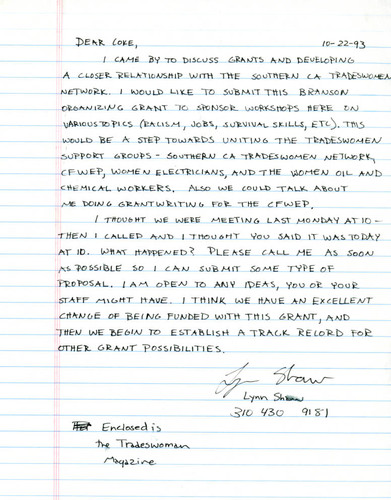 DEAR COKE, 10-22-93
I CAME BY TO DISCUSS GRANTS AND DEVELOPING
A CLOSER RELATIONSHIP WITH THE SOUTHERN CA TRADESWOMEN
NETWORK. I WOULD LIKE TO SUBMIT THIS BRANSON
ORGANIZING GRANT TO SPONSOR WORKSHOPS HERE ON
VARIOUS TOPICS (RACISM, JOBS, SURVIVAL SKILLS, ETC). THIS
WOULD BE A STEP TOWARDS UNITING THE TRADESWOMEN
SUPPORT GROUPS - SOUTHERN CA TRADESWOMEN NETWORK,
CFWEP, WOMEN ELECTRICIANS, AND THE WOMEN OIL AND
CHEMICAL WORKERS. ALSO WE COULD TALK ABOUT
ME DOING GRANTWRITING FOR THE CFWEP.
I THOUGHT WE WERE MEETING LAST MONDAY AT 10 -
THEN I CALLED AND I THOUGHT YOU SAID IT WAS TODAY
AT 10. WHAT HAPPENED? PLEASE CALL ME AS SOON
AS POSSIBLE SO I CAN SUBMIT SOME TYPE OF
PROPOSAL. I AM OPEN TO ANY IDEAS, YOU OR YOUR
STAFF MIGHT HAVE. I THINK WE HAVE AN EXCELLENT
CHANGE OF BEING FUNDED WITH THIS GRANT, AND
THEN WE BEGIN TO ESTABLISH A TRACK RECORD FOR
OTHER GRANT POSSIBILITIES.
Lynn Shaw
Lynn Shaw
310 430 9181
Enclosed is
the Tradeswoman
Magazine